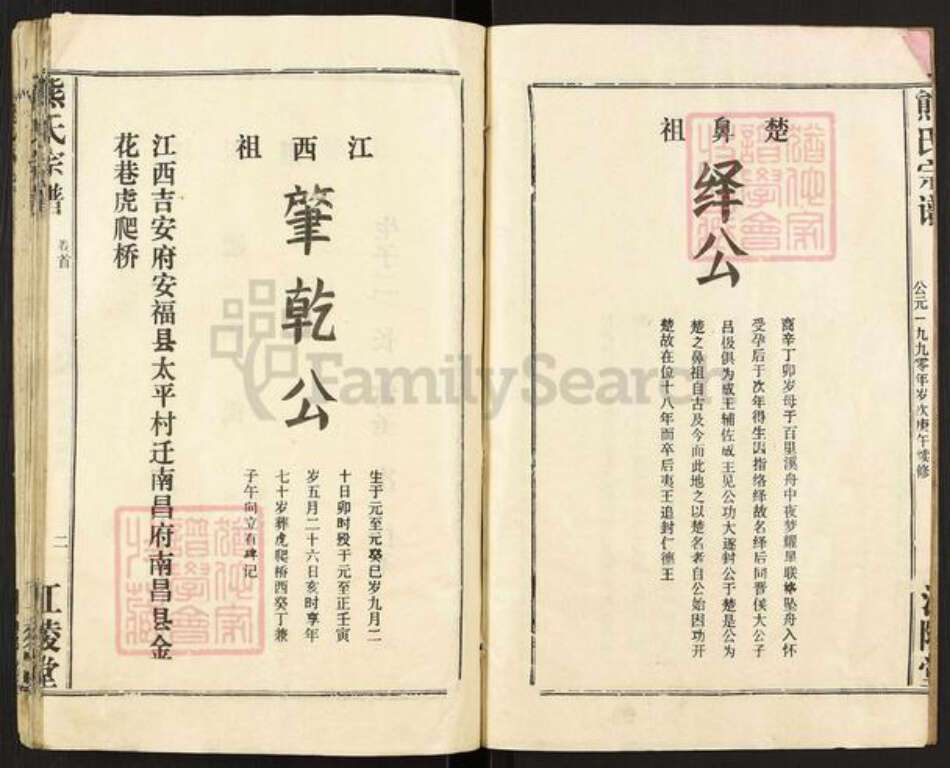 熊氏宗谱
公元一九九零年岁次庚午续修
江陵堂
楚鼻祖
绎公
商辛丁卯岁母于百里溪舟中夜梦耀星联蛛坠舟入怀
受孕后于次年得生因指络绎故名绎后同晋侯大公子
吕伋俱为成王辅佐成王见公功大遂封公于楚是公为
楚之鼻祖自古及今而此地之以楚名者自公始因功开
楚故在位十八年而卒后夷王追封仁德王
江西祖
肇乾公
生于元至元癸巳岁九月二
十日卯时殁于元至正壬寅
岁五月二十六日亥时享年
七十岁葬虎爬桥西癸丁兼
子午向立有碑记
江西吉安府安福县太平村迁南昌府南昌县金
花巷虎爬桥
熊氏宗谱
卷首
二
江陵堂
FamilySearch